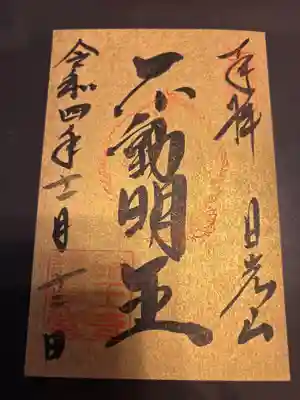 奉拝 日光山
不動明王
令和四年十二月十三日